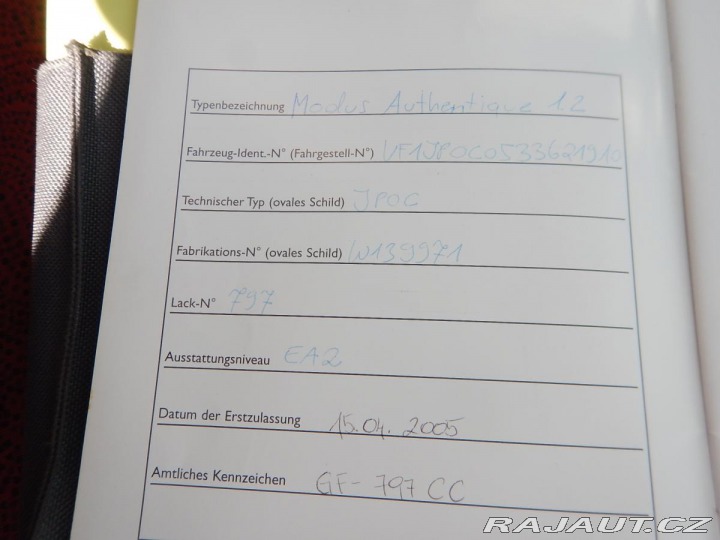 Typenbezeichnung Modus Authentique 1.2
Fahrzeug-Ident.-N° (Fahrgestell-N°) VF1JP0C0533621910
Technischer Typ (ovales Schild) JP0C
Fabrikations-N° (ovales Schild) W139971
Lack-N° 797
Ausstattungsniveau EA2
Datum der Erstzulassung 15.04.2005
Amtliches Kennzeichen GF-797 CC
RAJAUT.CZ